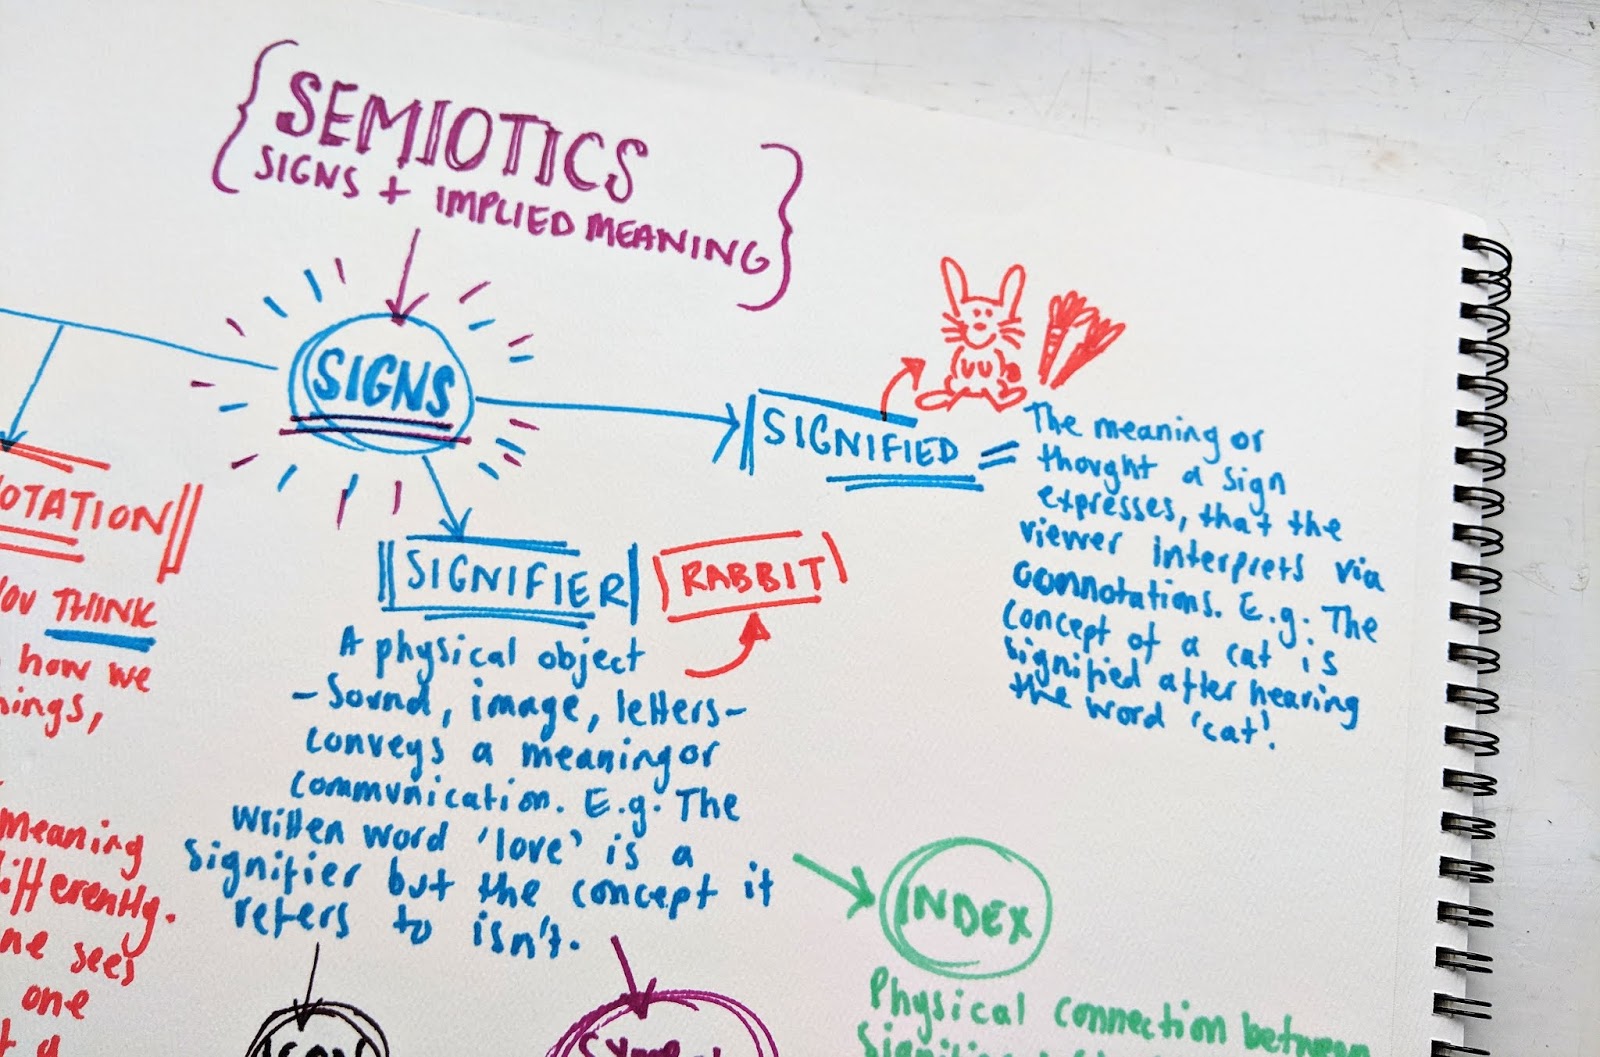 SEMIOTICS
SIGNS + IMPLIED MEANING
SIGNS
SIGNIFIED =
The meaning or
thought a sign
expresses, that the
viewer interprets via
connotations. E.g. The
concept of a cat is
signified after hearing
the word 'cat'.
SIGNIFIER
RABBIT
A physical object
- Sound, image, letters -
conveys a meaning or
communication. E.g. The
written word 'love' is a
signifier but the concept it
refers to isn't.
OTATION
OU THINK
how we
ings,
meaning
ifferently.
ne sees
one
INDEX
Physical connection between
ICON